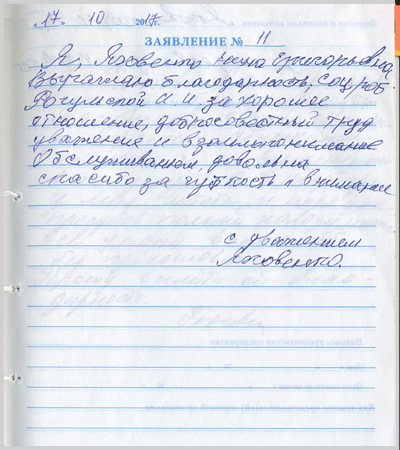 17. 10 2017г.
ЗАЯВЛЕНИЕ № 11
Я, Яковенко Нина Григорьевна
Выражаю благодарность, соц/раб.
Рогульской И. И. за хорошее
отношение, добросовестный труд
уважение и взаимопонимание
Обслуживанием довольна
спасибо за чуткость и внимание
с уважением
Яковенко.